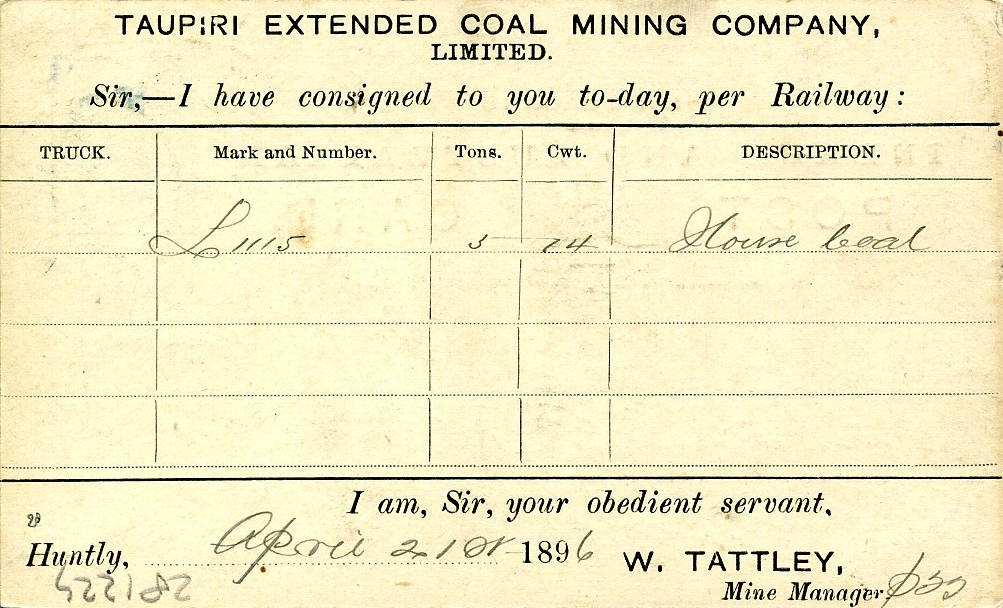 TAUPIRI EXTENDED COAL MINING COMPANY,
LIMITED.
Sir,—I have consigned to you to-day, per Railway:
TRUCK. Mark and Number. Tons. Cwt. DESCRIPTION.
L 1115 5 House Coal
I am, Sir, your obedient servant,
28
Huntly, April 21st 1896 W. TATTLEY,
Mine Manager,